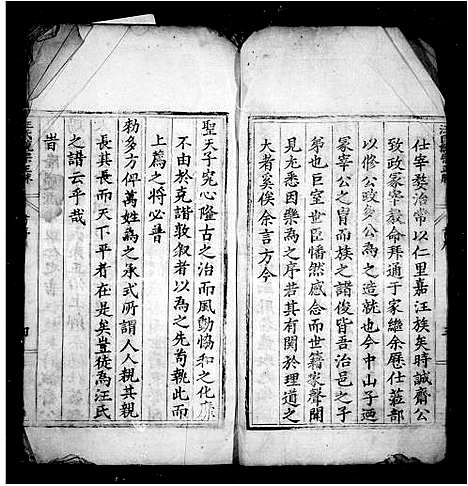 仕宰婺治常以仁里嘉汪族矣時誠齋公
致政冢宰敭命拜通于家繼余歷仕
部
以修公政多公為之造就也今中山子
冢宰公之胄而族之譜俊皆吾治邑之子
弟也巨室世臣惓然感念而世籍家聲聞
見尤悉因樂為之序若其有關於理道之
大者奚俟余言方今
聖天子究心隆古之治而風動協和之化
不由於克諧敦敘者以為之先苟執此而
上爲之將必普
勑多方仰萬姓為之承式所謂人人親其親
長其長而天下平者在是矣豈徒為汪氏
之譜云乎哉
旹